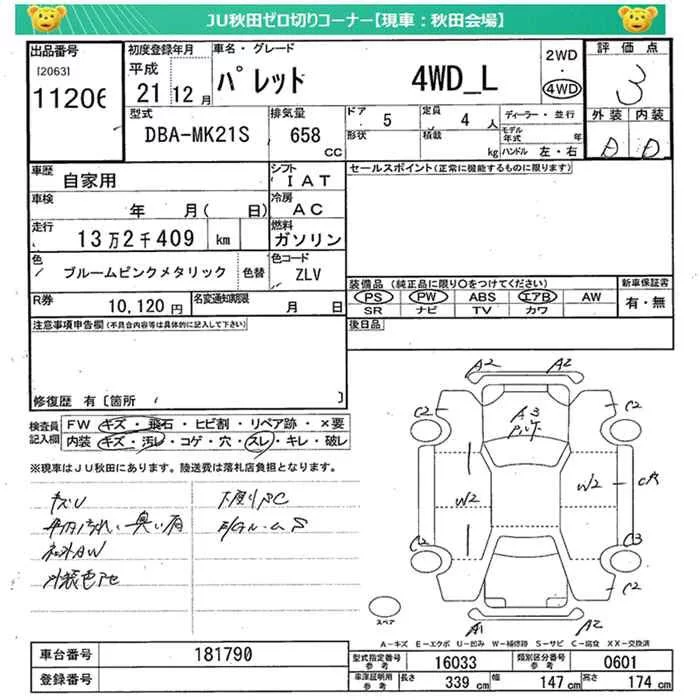 JU秋田ゼロ切りコーナー【現車：秋田会場】
出品番号
[2063]
11206
初度登録年月
平成
21 12月
車名・グレード
パレット 4WD_L
2WD
・
4WD
評価点
3
型式
DBA-MK21S
排気量
658
CC
ドア 5
定員 4 人
形状
積載 kg
ディーラー・並行
モデル年式 年
ハンドル 左・右
外装 内装
D D
車歴
自家用
シフト
IAT
セールスポイント(正常に機能するものに限ります)
車検
年 月( 日)
冷房
AC
走行
13万2千409 km
燃料
ガソリン
色
ブルームピンクメタリック
色替
色コード
ZLV
装備品 (純正品に限り○をつけてください)
新車保証書
PS PW ABS エアB AW
SR ナビ TV カワ
有・無
R券
10,120円
名変通知期限
月 日
後日品
注意事項申告欄(不具合内容等は具体的に記入して下さい)
修復歴 有 [箇所 ]
検査員
記入欄
FW キズ・飛石・ヒビ割・リペア跡・×要
内装 キズ・汚レ・コゲ・穴・スレ・キレ・破レ
※現車はJU秋田にあります。陸送費は落札店負担となります。
キズU
下廻りSC
社外AW
A2 A2
C2 C2
A3
W2 W2
C2 C3
C2
A1 A2
スペア
A－キズ E－エクボ U－凹み W－補修跡 S－サビ C－腐食 XX－交換済
車台番号
181790
登録番号
型式指定番号
参考
16033
類別区分番号
参考
0601
車庫証明用
参考
長さ 339 cm 幅 147 cm 高さ 174 cm